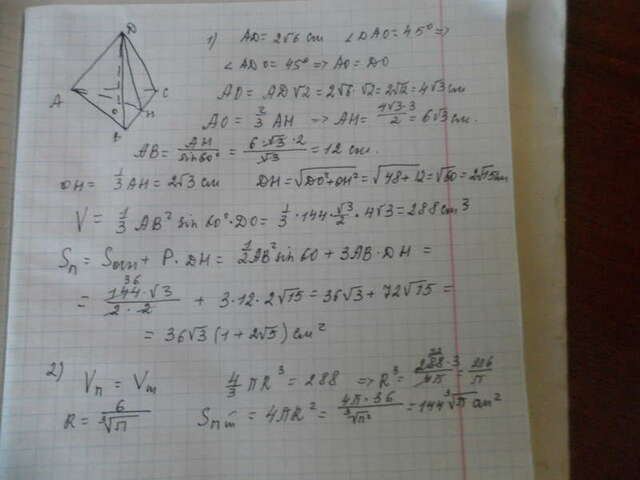 D
A
C
O
H
B
1) AD = 2√6 см ∠DAO = 45° ⇒
∠ADO = 45° ⇒ AO = DO
AO = AD√2 = 2√6·√2 = 2√12 = 4√3 см
AO = 2/3 AH → AH = 4√3·3/2 = 6√3 см.
AB = AH/sin60° = 6·√3·2/√3 = 12 см.
OH = 1/3 AH = 2√3 см DH = √DO²+OH² = √48+12 = √60 = 2√15 см
V = 1/3 AB² sin 60°·DO = 1/3·144·√3/2·4√3 = 288 см³
Sп = Sосн + P·DH = 1/2 AB² sin 60 + 3AB·DH =
= 144·√3/2·2 + 3·12·2√15 = 36√3 + 72√15 =
36
= 36√3 (1 + 2√5) см²
2) Vп = Vш 4/3 πR³ = 288 ⇒ R³ = 288·3/4π = 216/π
72
R = 6/∛π Sп ш = 4πR² = 4π·36/∛π² = 144∛π см²